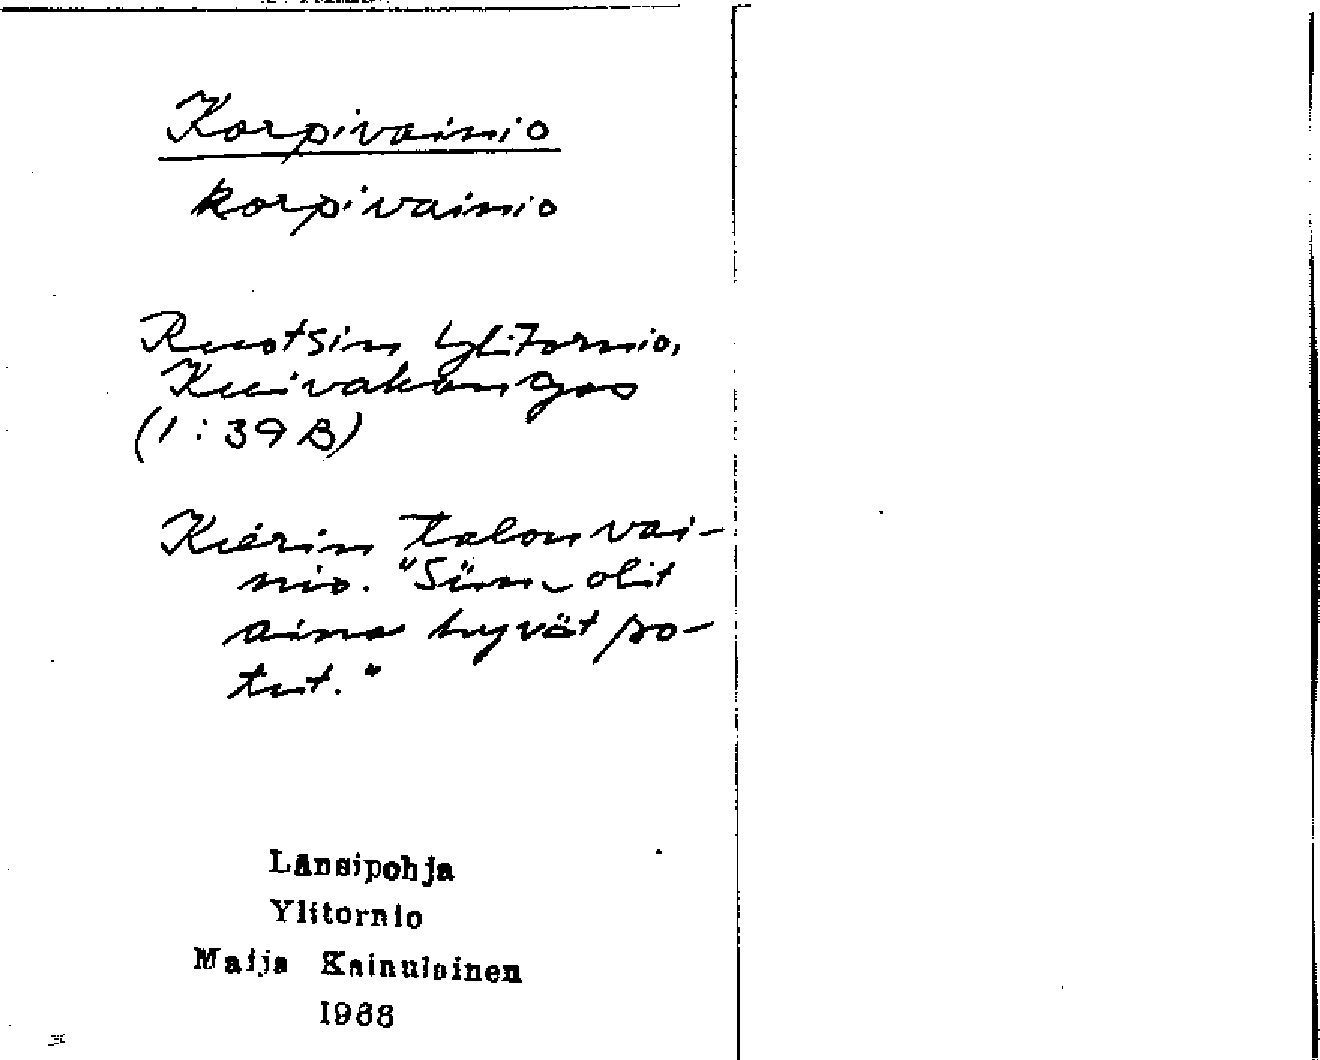 Korpivainio
korpivainio
Ruotsin Ylitornio,
Kuivakangas
(1:39 B)
Kierin talon vai-
nio. "Siin_ olit
aina hyvät po-
tut."
Länsipohja
Ylitornio
Maija Kainulainen
1966